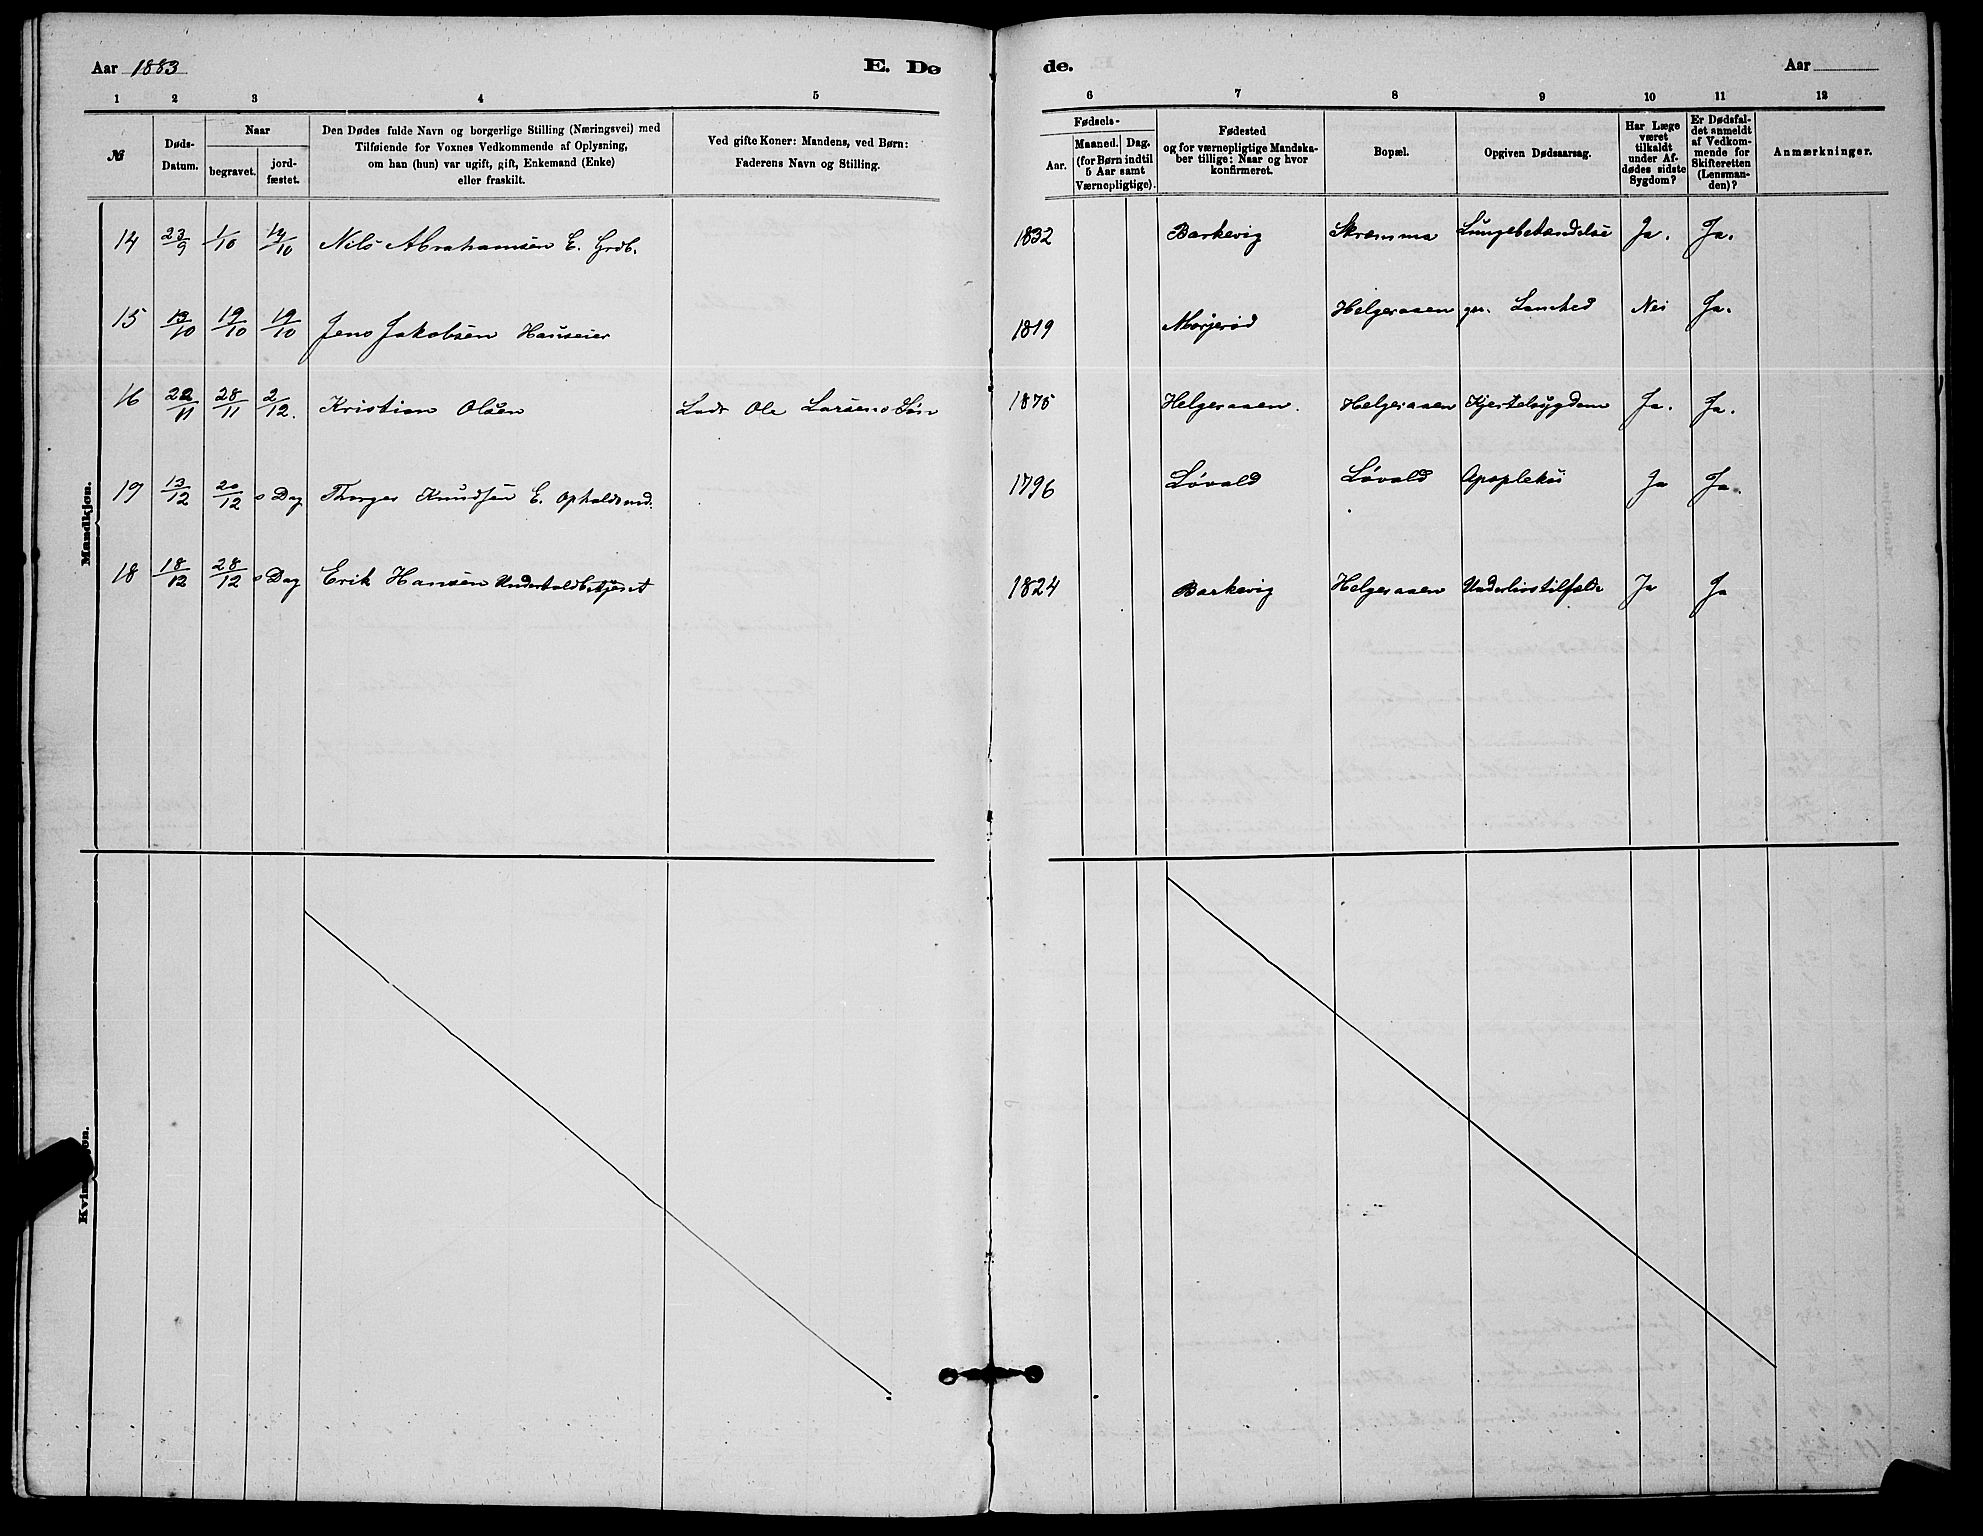 Aar 1883 E. Dø
de. Aar
1 2 3 4 5
6 7 8 9 10 11 12
№
Døds-Datum.
Naar
begravet.
jord-fæstet.
Den Dødes fulde Navn og borgerlige Stilling (Næringsvei) med
Tilføiende for Voxnes Vedkommende af Oplysning,
om han (hun) var ugift, gift, Enkemand (Enke)
eller fraskilt.
Ved gifte Koner: Mandens, ved Børn:
Faderens Navn og Stilling.
Fødsels-
Aar.
Maaned. Dag.
(for Børn indtil
5 Aar samt
Værnepligtige).
Fødested
og for værnepligtige Mandska-
ber tillige: Naar og hvor
konfirmeret.
Bopæl.
Opgiven Dødsaarsag.
Har Læge
været
tilkaldt
under Af-
dødes sidste
Sygdom?
Er Dødsfal-
det anmeldt
af Vedkom-
mende for
Skifteretten
(Lensman-
den)?
Anmærkninger.
Mandkjøn.
14 23/9 1/10 14/10 Nils Abrahamsen E. Grdb. 1832 Barkevig Skræmma Lungebetændelse Ja. Ja.
15 13/10 19/10 19/10 Jens Jakobsen Huseier 1819 Mørjerød Helgeraaen Nei Ja.
16 22/11 28/11 2/12. Kristian Olsen Lods Ole Larsens Søn 1875 Helgeraaen. Helgeraaen Kjertelsygdom Ja. Ja.
19 13/12 20/12 s Dag Thorger Knudsen E. Opholdsmd. 1796 Løvald Løvald Apopleksi Ja Ja.
18 18/12 28/12 s Dag Erik Hansen 1824 Barkevig Helgeraaen Underlivstilfælde Ja Ja